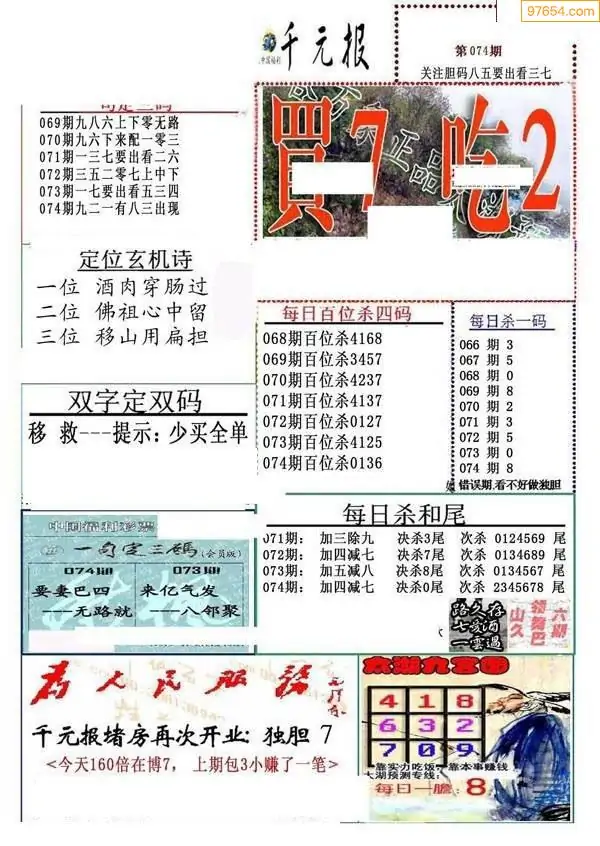 97654.com
千元报
中国福利
第074期
关注胆码八五要出看三七
069期九八六上下零无路
070期九六下来配一零三
071期一三七要出看二六
072期三五二零七上中下
073期一七要出看五三四
074期九二一有八三出现
買7吃2
正品
定位玄机诗
一位 酒肉穿肠过
二位 佛祖心中留
三位 移山用扁担
每日百位杀四码
068期百位杀4168
069期百位杀3457
070期百位杀4237
071期百位杀4137
072期百位杀0127
073期百位杀4125
074期百位杀0136
每日杀一码
066 期 3
067 期 5
068 期 0
069 期 8
070 期 2
071 期 3
072 期 5
073 期 0
074 期 8
错误期,看不好做独胆
双字定双码
移 救---提示:少买全单
每日杀和尾
071期: 加三除九 决杀3尾 次杀 0124569 尾
072期: 加四减七 决杀7尾 次杀 0134689 尾
073期: 加五减八 决杀8尾 次杀 0134567 尾
074期: 加四减七 决杀0尾 次杀 2345678 尾
中国福利彩票
一句定三碼(会员版)
074期 073期
要妻巴四 来亿气发
---无路就 ---八邻聚
为人民服务
千元报堵房再次开业: 独胆 7
<今天160倍在博7, 上期包3小赚了一笔>
太湖九宫图
4 1 8
6 3 2
7 0 9
靠实力吃饭, 靠本事赚钱
太湖预测专线:
每日一胆: 8